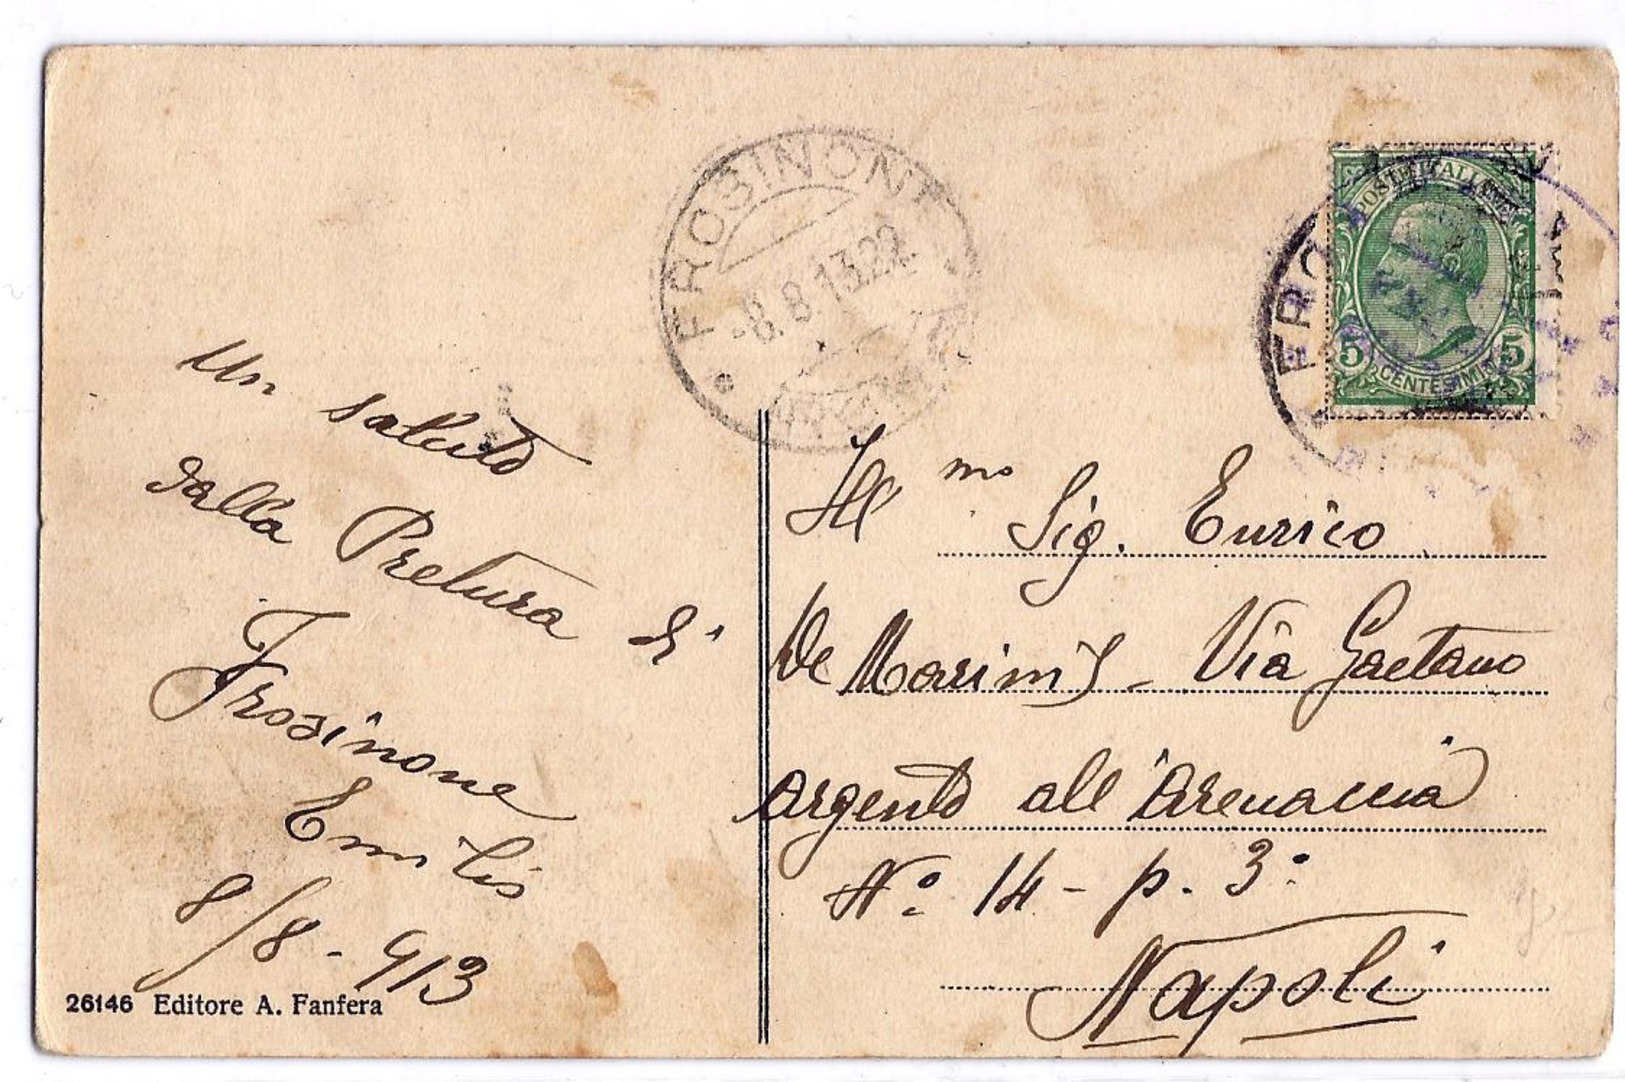 FROSINONE
-8.8.13.22
POSTE ITALIANE
5 CENTESIMI 5
FRO
Un saluto
dalla Pretura di
Frosinone
Emilio
8/8-913
Ill mo Sig. Enrico
De Marinis - Via Gaetano
Argento all'Arenaccia
No. 14 - p. 3o
Napoli
26146 Editore A. Fanfera